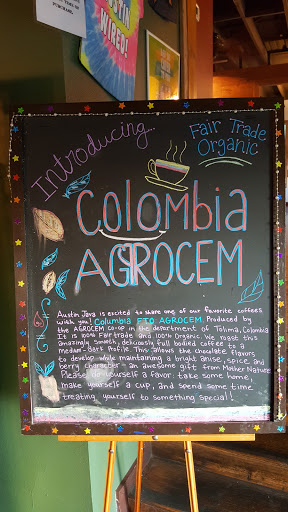 AUSTIN
WIRED!
Introducing...
Fair Trade
Organic
Colombia
AGROCEM
Austin Java is excited to share one of our favorite coffees
with you! Columbia FTO AGROCEM. Produced by
the AGROCEM co-op in the department of Tolima, Colombia
It is 100% Fairtrade and 100% Organic. We roast this
amazingly smooth, deliciously full bodied coffee to a
medium-dark Profile. This allows the chocolate flavors
to develop while maintaining a bright anise, spice, and
berry character - an awesome gift from Mother Nature
Please do yourself a favor: take some home,
make yourself a cup, and spend some time
treating yourself to something special!